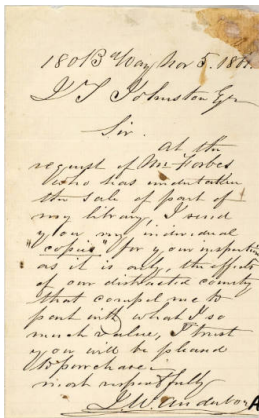 1801 B way Nov 5. 186
J T Johnston Eqr
Sir.
At the
request of Mr Forbes
who has undertaken
the sale of part of
my library, I send
you my individual
"copies" for your inspection
as it is only, the effects
of our distracted country
that compel me to
part with what I so
much value, I trust
you will be pleased
to purchase.
most respectfully
A